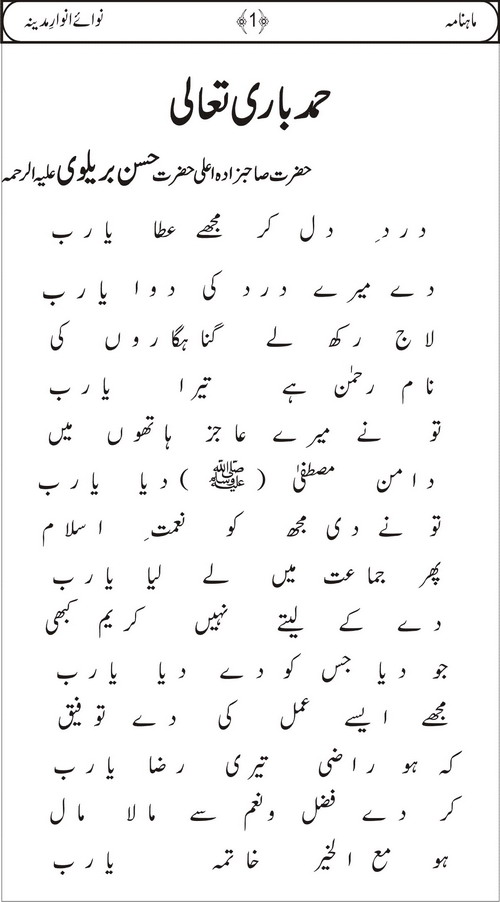 ماہنامہ ﴿1﴾ نوائے انوارِ مدینہ
حمد باری تعالی
حضرت صاحبزادہ اعلی حضرت حسن بریلوی علیہ الرحمہ
دردِ دل کر مجھے عطا یارب
دے میرے درد کی دوا یارب
لاج رکھ لے گناہگاروں کی
نام رحمٰن ہے تیرا یارب
تو نے میرے عاجز ہاتھوں میں
دامن مصطفیٰ (ﷺ) دیا یارب
تو نے دی مجھ کو نعمتِ اسلام
پھر جماعت میں لے لیا یارب
دے کے لیتے نہیں کریم کبھی
جو دیا جس کو دے دیا یارب
مجھے ایسے عمل کی دے توفیق
کہ ہو راضی تیری رضا یارب
کر دے فضل ونعم سے مالا مال
ہو مع الخیر خاتمہ یارب